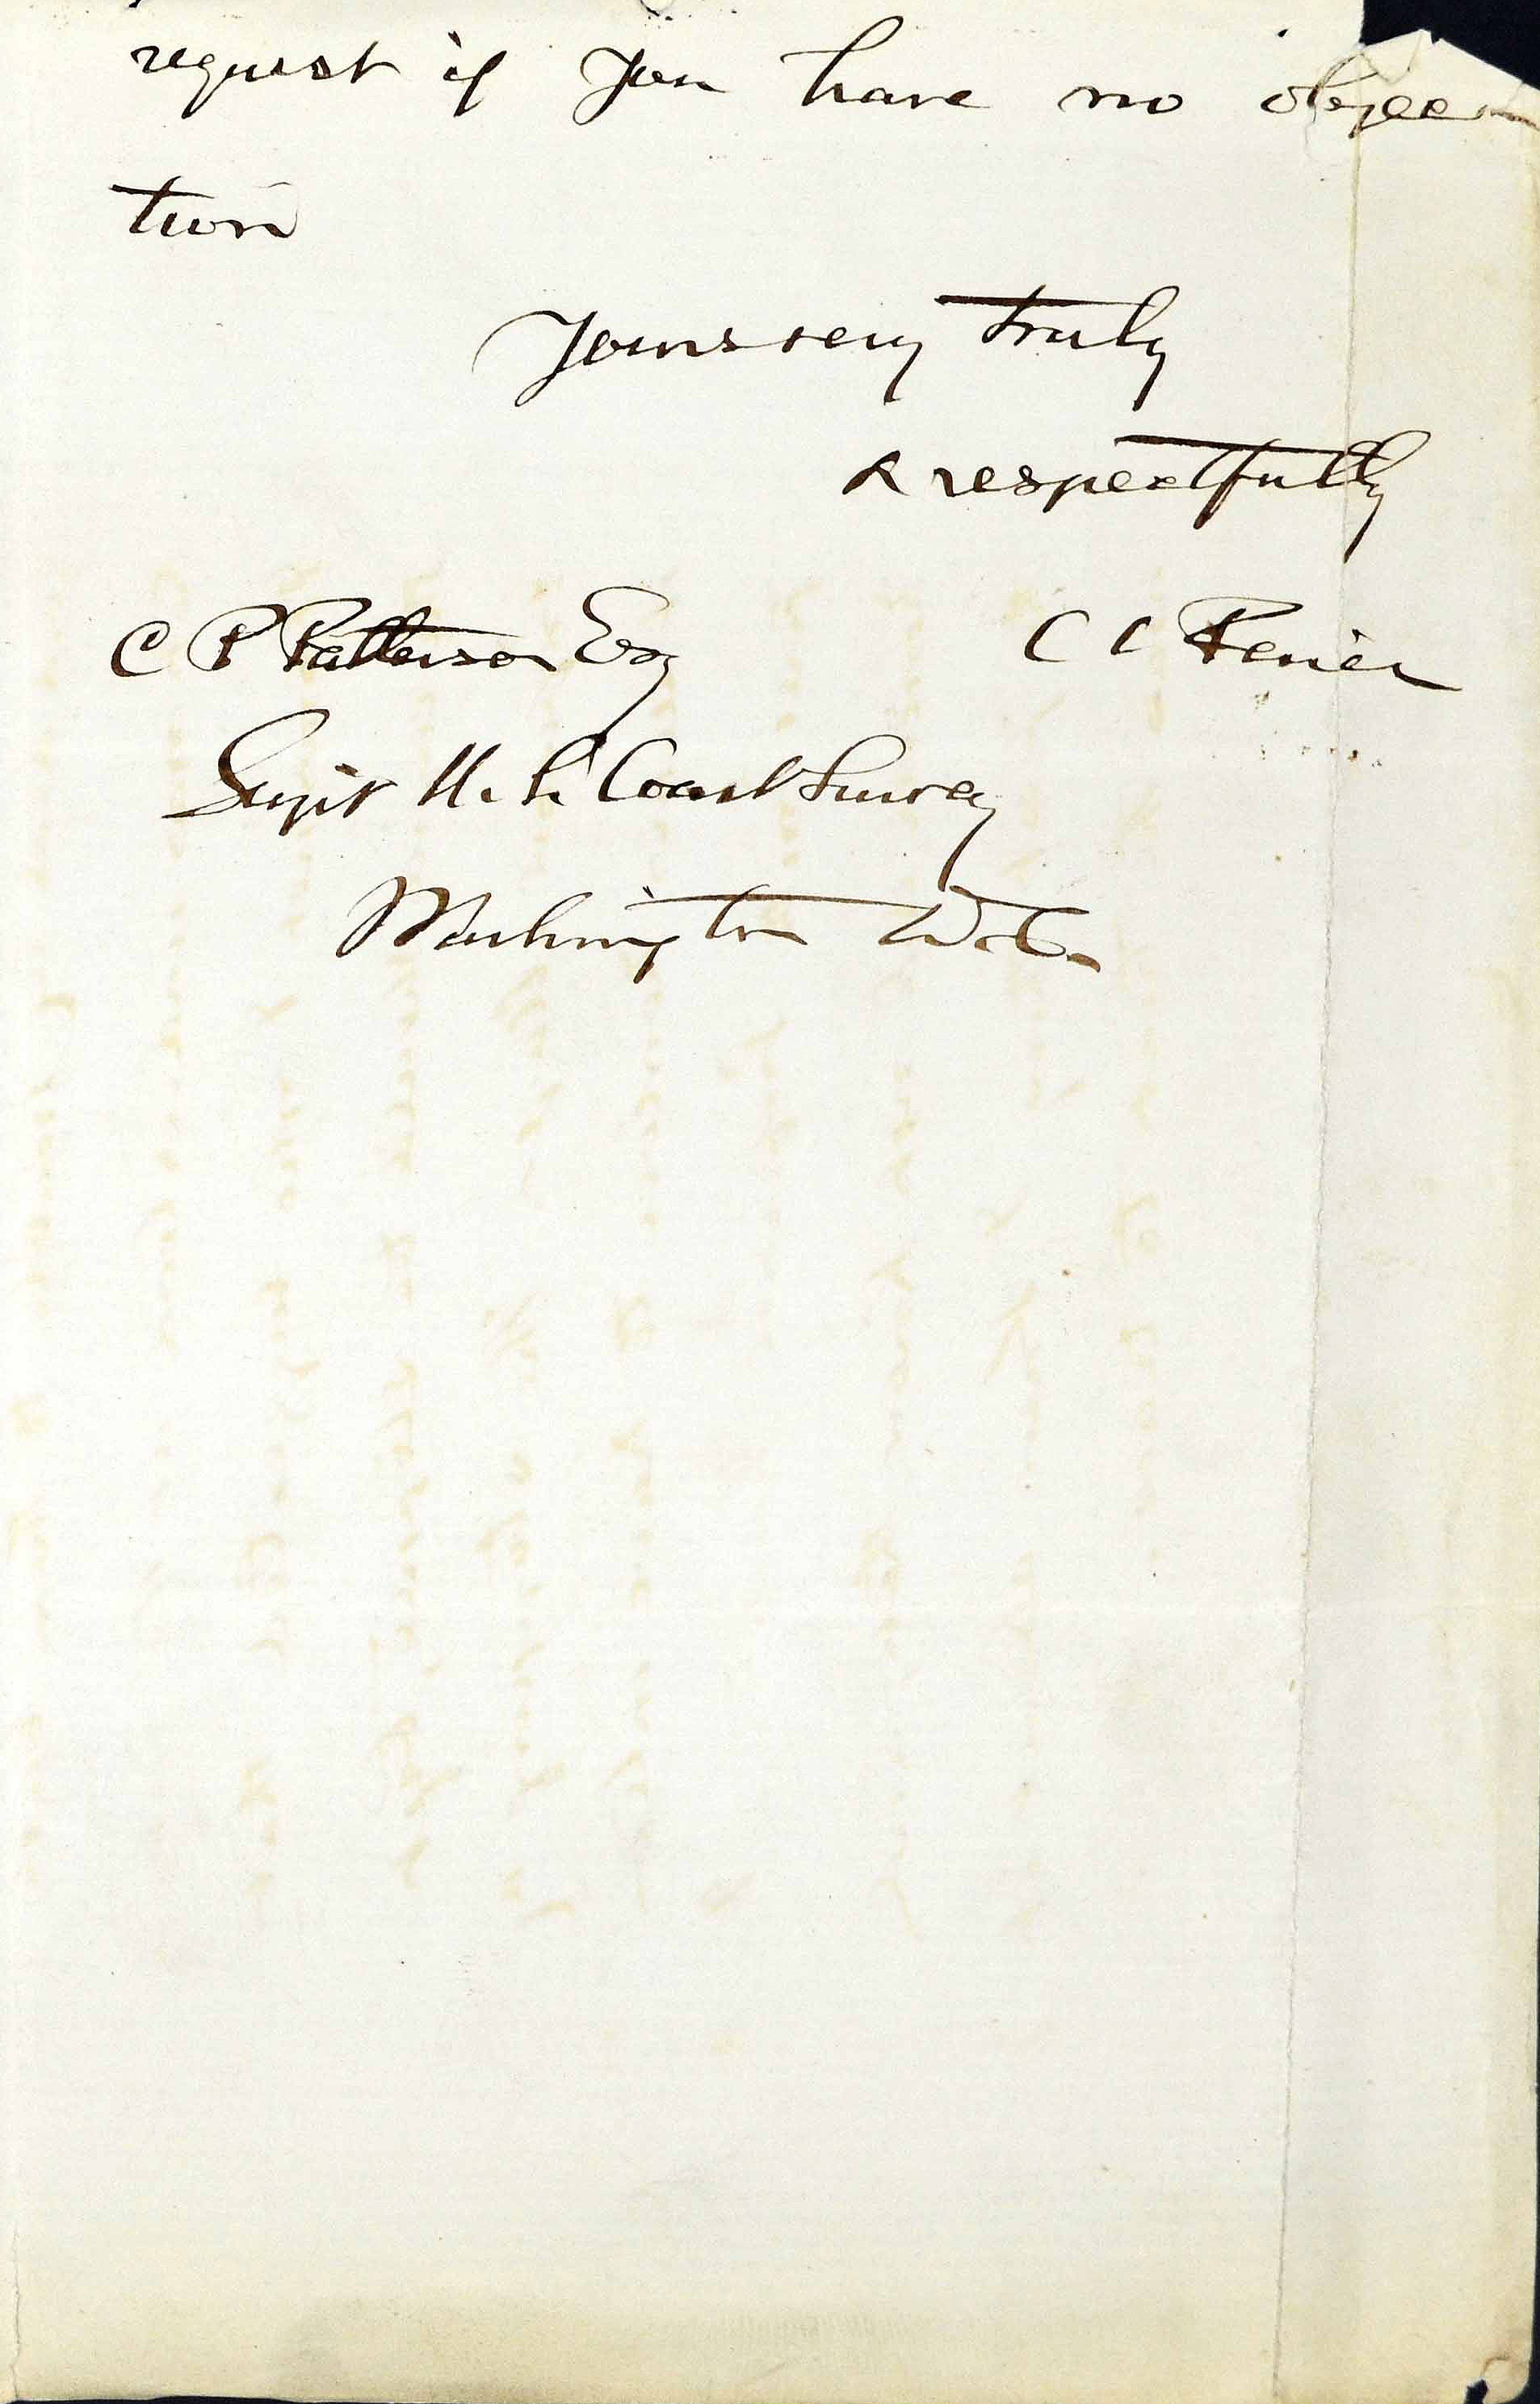 request if you have no objec
tion
Yours very truly
& respectfully
C P Patterson Esq
C C Perier
Supt U. S. Coast Survey
Washington D. C.